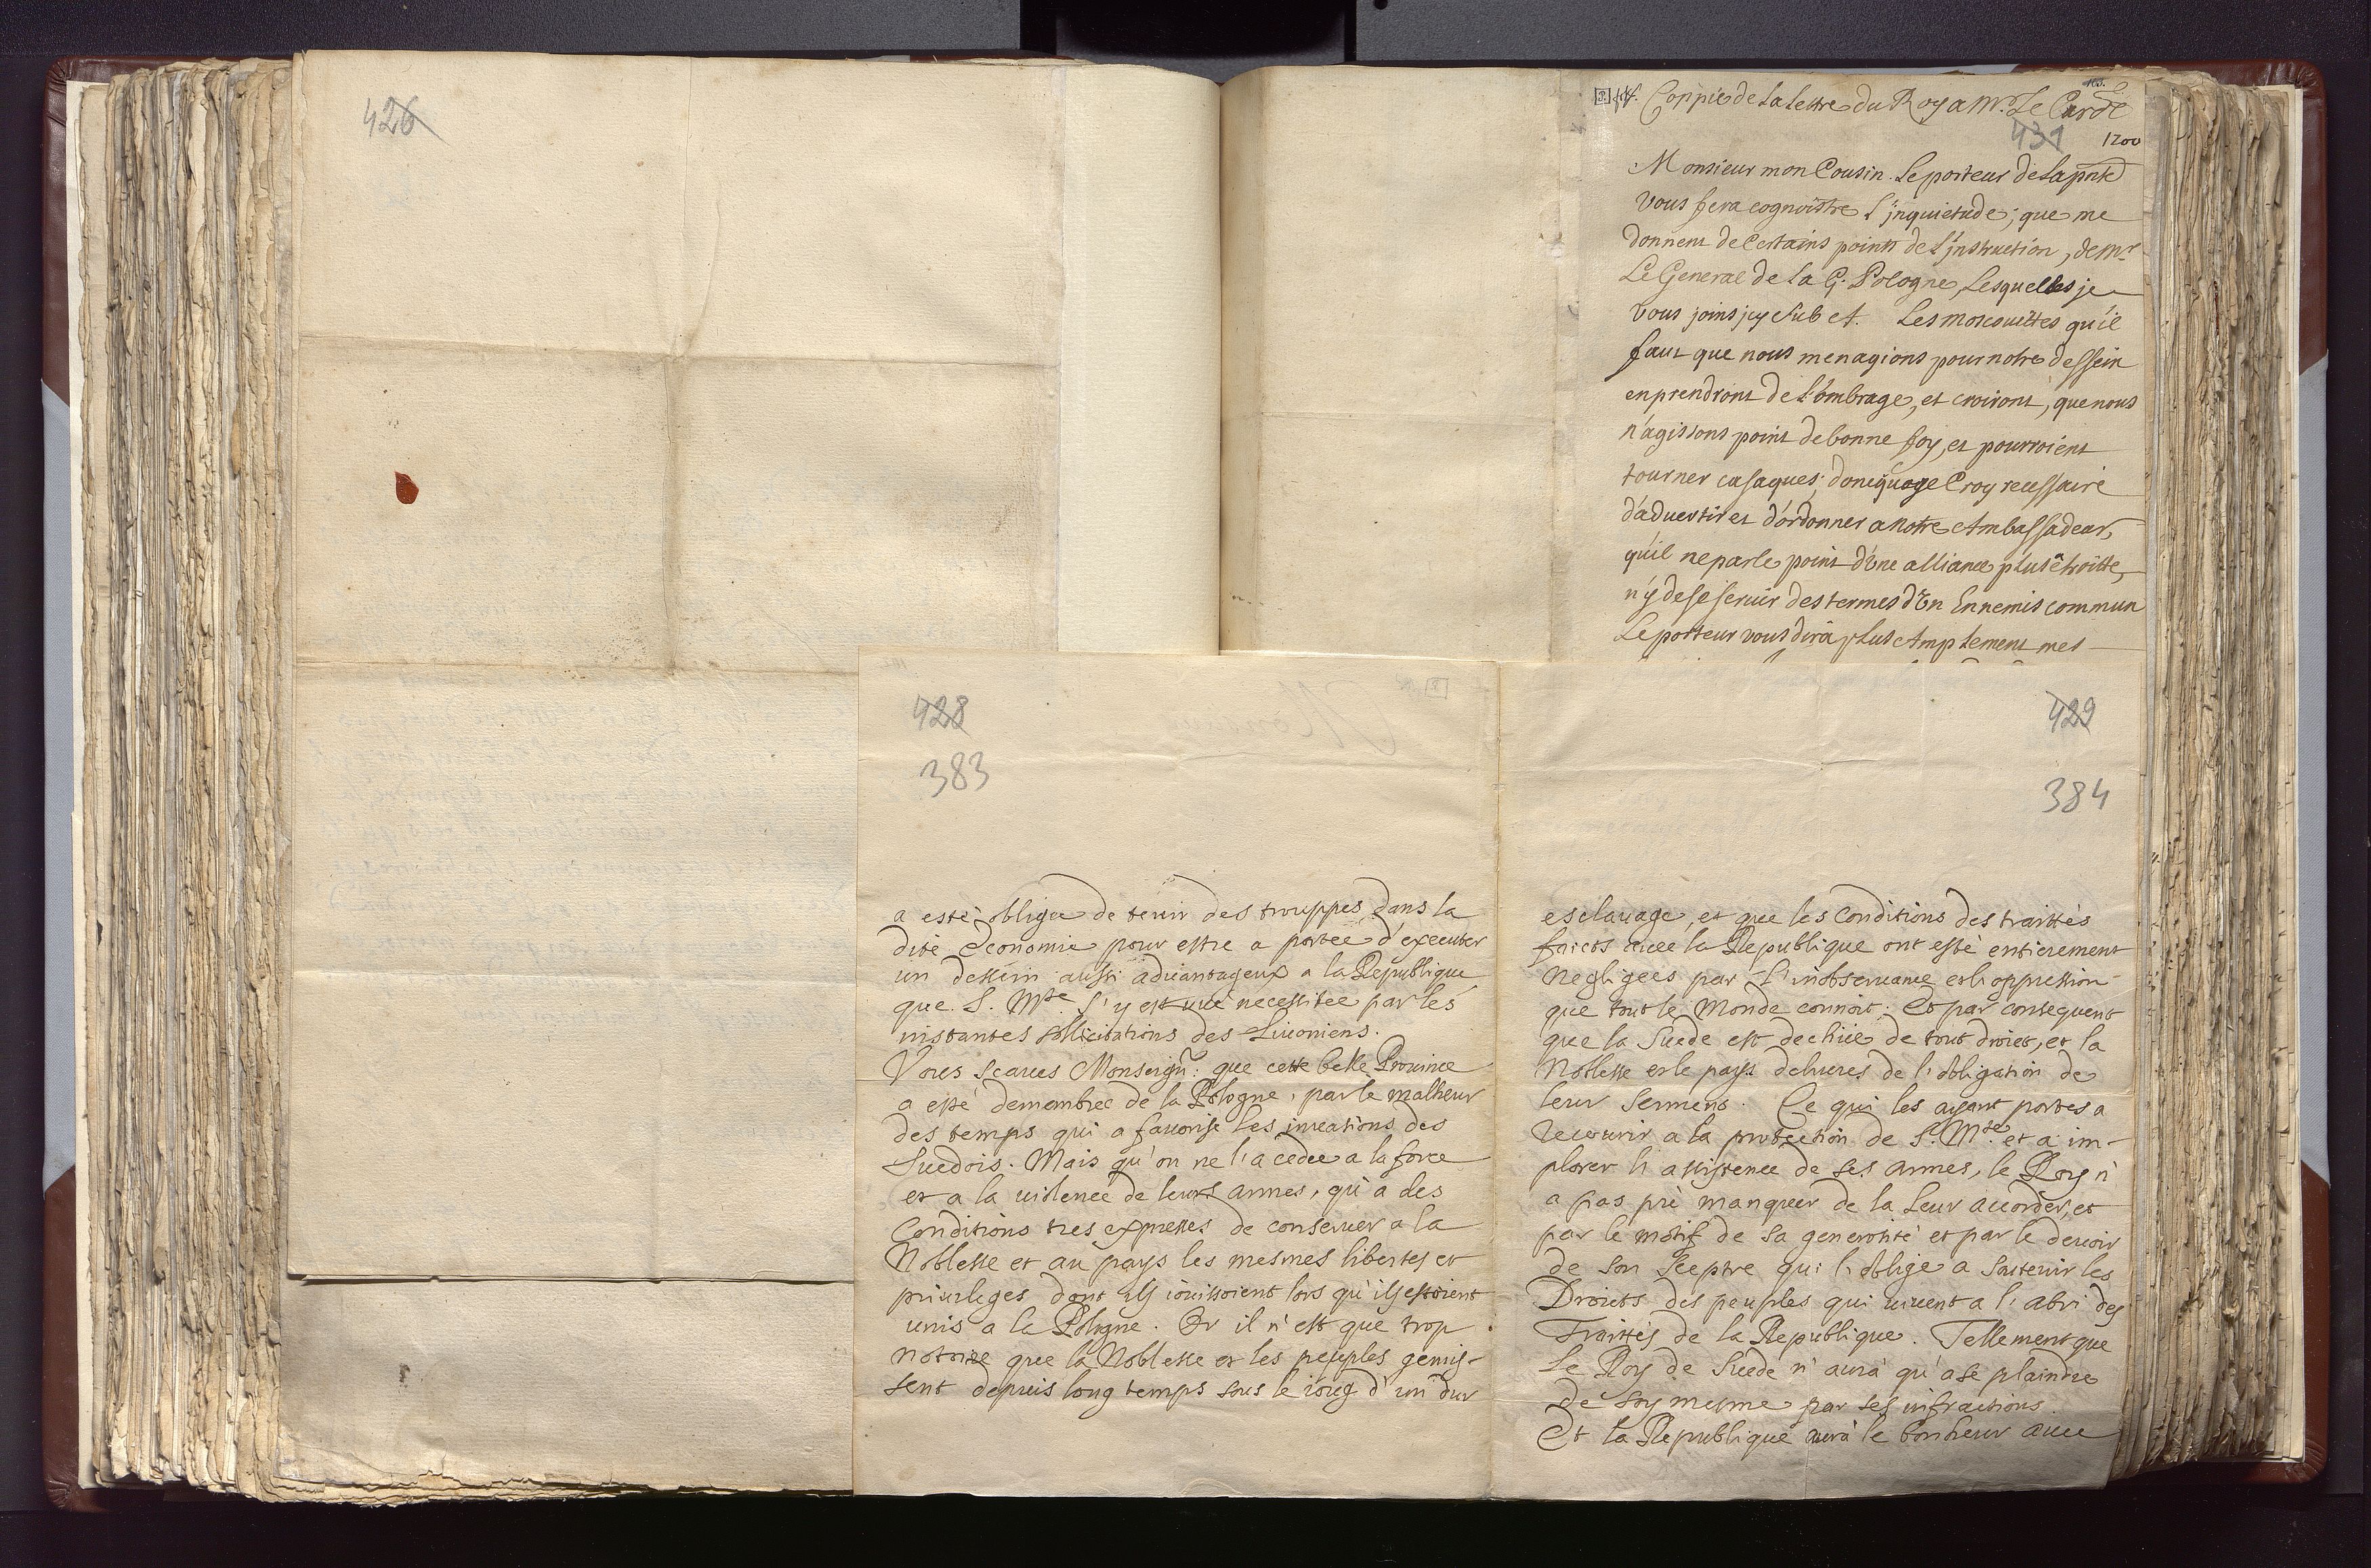 426
Coppie de La lettre du Roy a Mr. Le Card
431
1700
Monsieur mon Cousin. Le porteur de La pnte
vous fera cognoistre L'jnquietude; que me
donnent de Certains points de L'jnstruction, de Mr
Le General de La G. Pologne, Lesquelles je
vous joins jcy sub A. Les moscouittes qu'il
faut que nous menagions pour notre dessein
en prendront de L'ombrage, et croiront, que nous
n'agissons point de bonne foy, et pourroient
tourner casaques; donc que je Croy necessaire
d'aduertir et d'ordonner a notre Ambassadeur,
qu'il ne parle point d'Vne alliance plus êtroitte,
n'y de se seruir des termes d'Vn Ennemis commun
Le porteur vous dirâ plus Amplement mes
428
383
a esté obligee de tenir des trouppes dans la
dite Economie pour estre a portee d'executer
un dessein aussi aduantageux a la Republique
que S. Mte s'y est uue necessitee par les
instantes sollicitations des Liuoniens.
Vous scaues Monseigr: que cette belle Prouince
a esté demembree de la Pologne, par le malheur
des temps qui a fauorise les inuasions des
Suedois. Mais qu'on ne l'a cedee a la force
et a la uiolence de leurs armes, qu'a des
Conditions tres expresses de conseruer a la
Noblesse et au pays les mesmes libertes et
priuileges dont ils iouissoient lors qu'ils estoient
unis a la Pologne. Or il n'est que trop
notoire que la Noblesse et les peuples gemis-
sent depuis long temps sous le ioug d'un dur
429
384
esclauage, et que les Conditions des traittés
faicts auec la Republique ont esté entierement
negligees par l'inobseruance et l'oppression
que tout le Monde connoit; Et par consequent
que la Suede est dechüe de tout droict, et la
Noblesse et le pays deliures de l'obligation de
leur serment. Ce qui les ayant portes a
recourir a la protection de S. Mte. et a im-
plorer l'assistence de ses armes, le Roy n'
a pas pû manquer de la leur accorder, et
par le motif de sa generosité et par le deuoir
de son Sceptre qui l'oblige a soutenir les
Droicts des peuples qui uiuent a l'abri des
Traittés de la Republique. Tellement que
Le Roy de Suede n'aura qu'a se plaindre
de soy mesme par ses infractions.
Et la Republique aura le bonheur auec